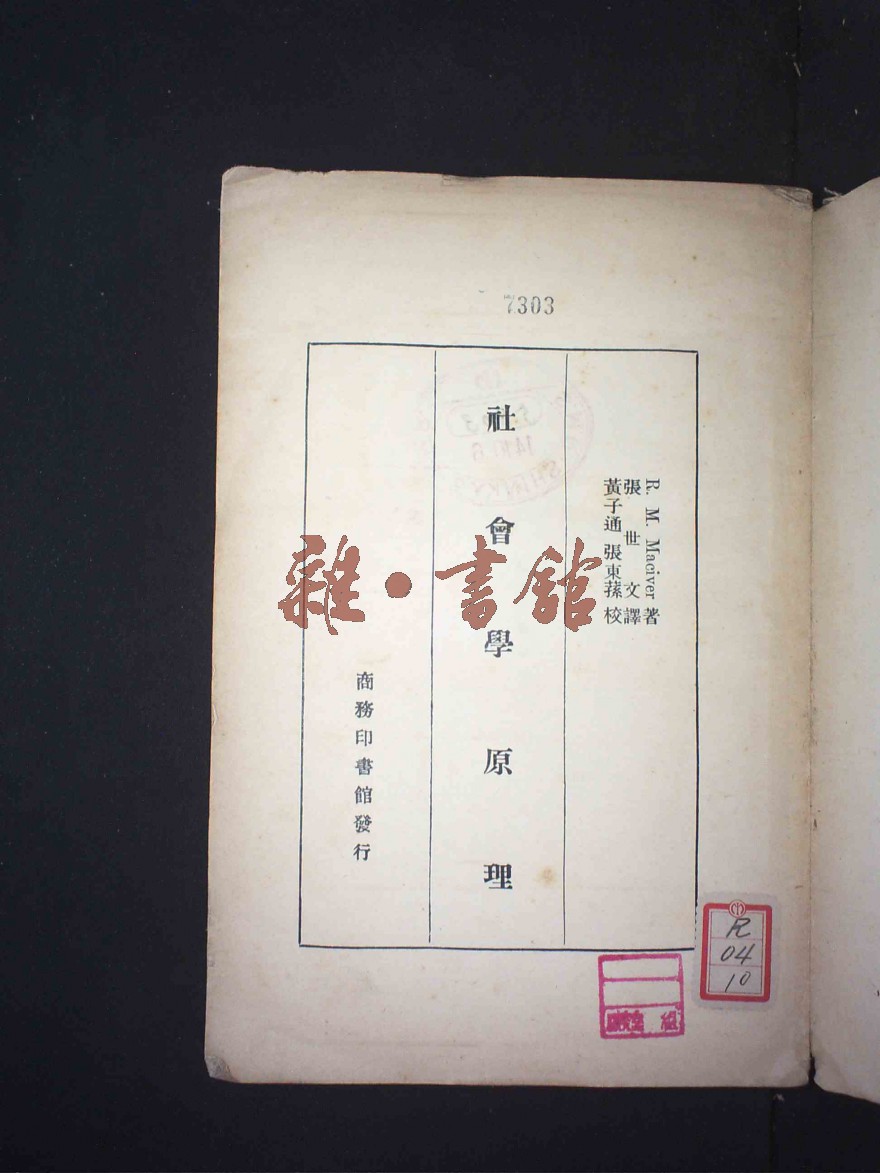 7303
R. M. Maciver 著
張世文譯
黃子通 張東蓀 校
社會學原理
商務印書館發行
雜·書館
R
04
10
組